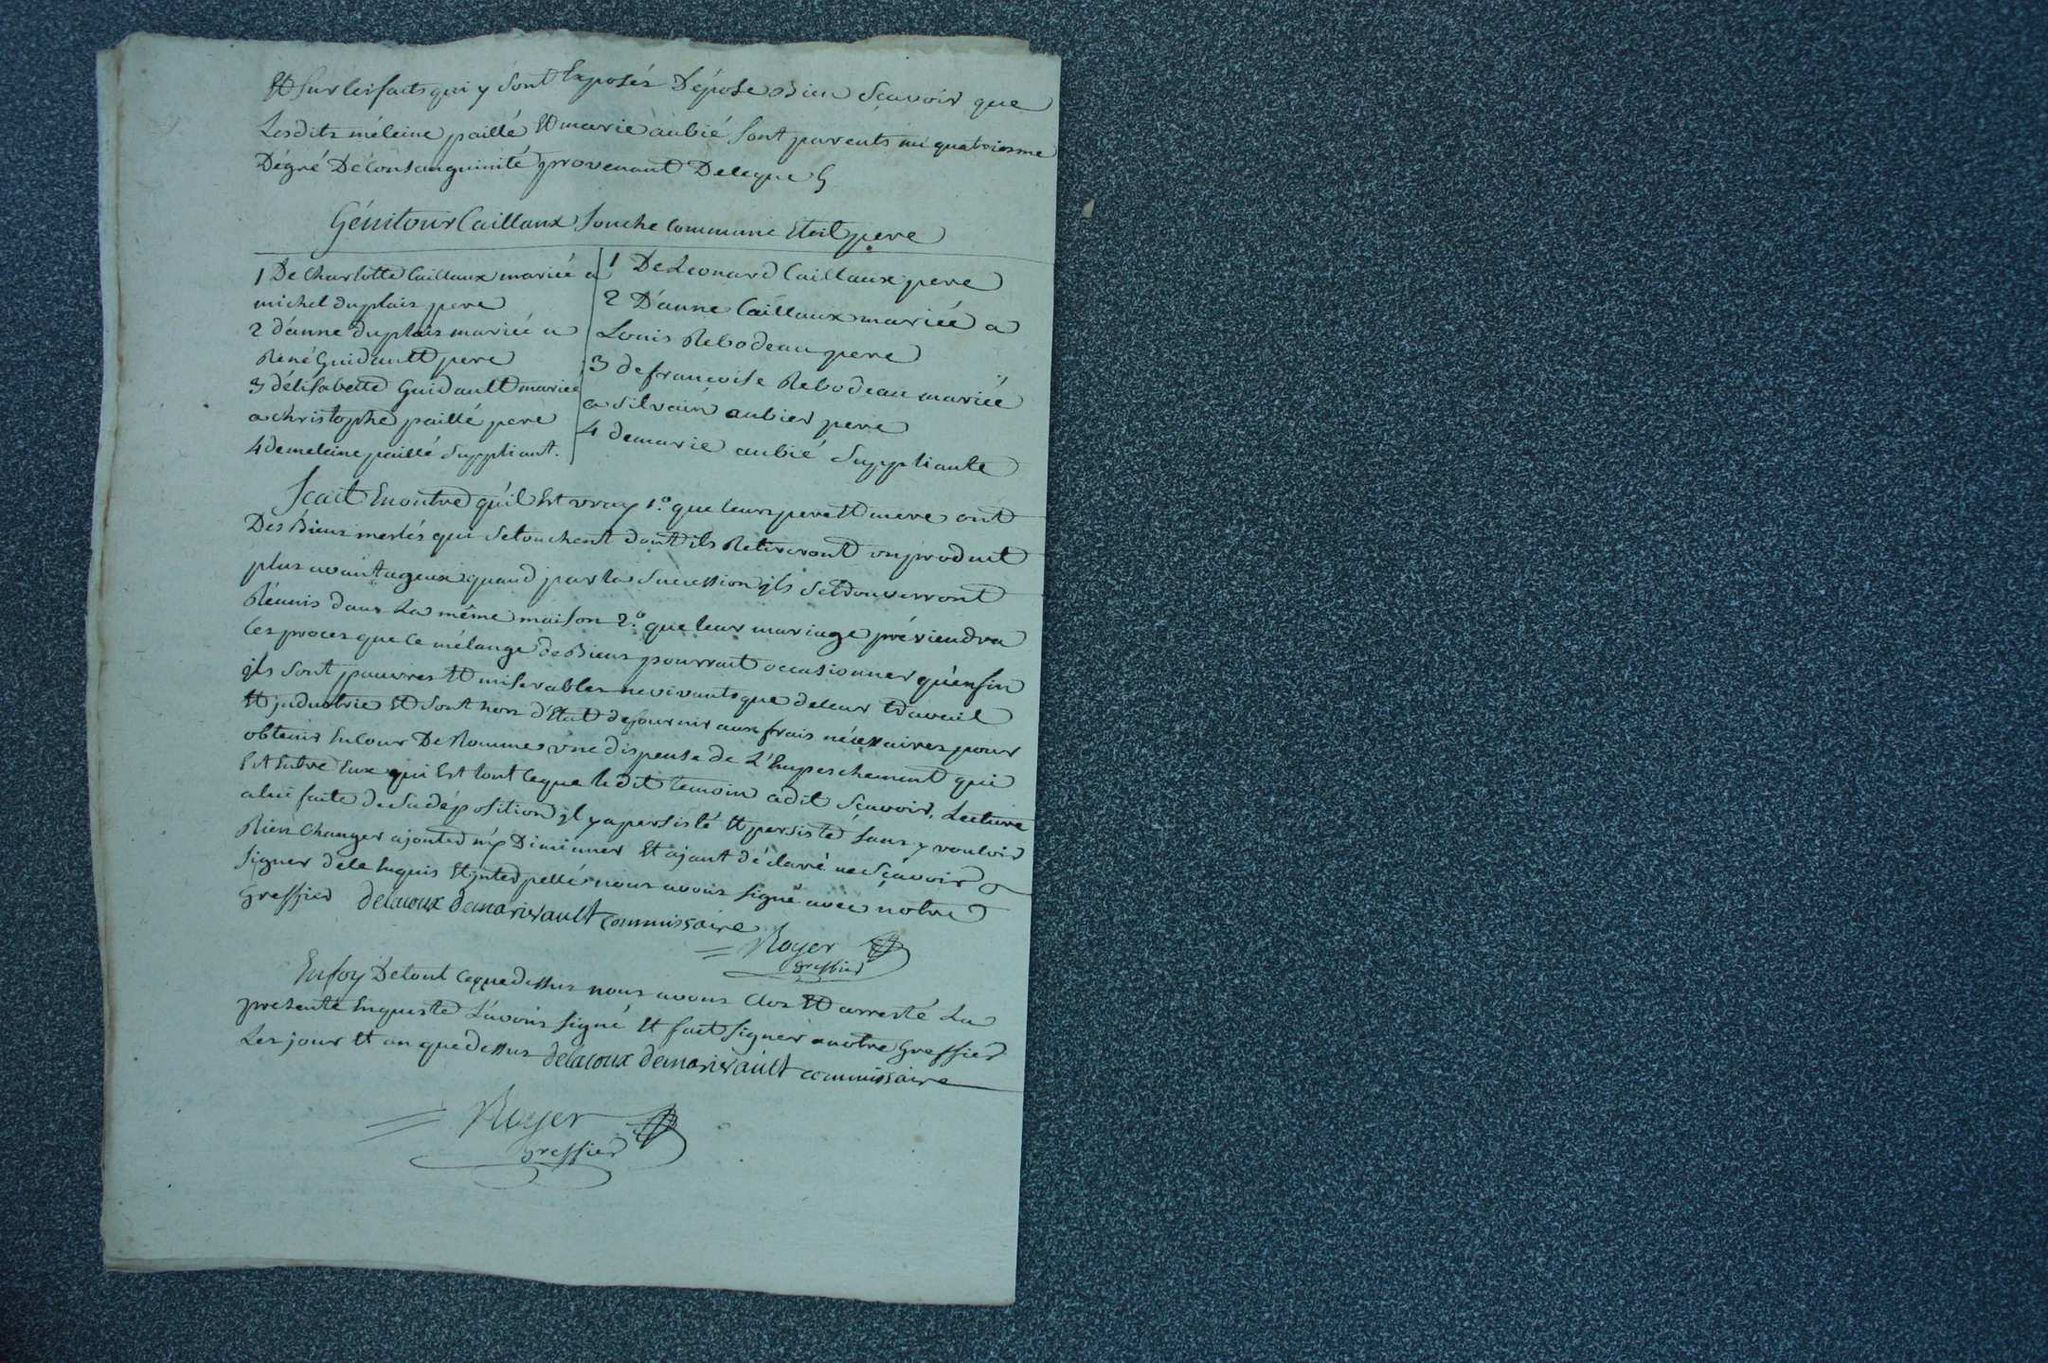 Et sur les faits qui y sont Exposés Dépose Bien Sçavoir que
Lesdits méleine paillé Et marie aubié sont parents au quatriesme
Dégré De Consanguinité provenant De leque
Génitour Caillaux Souche Commune Etoit pere
1 De Charlotte Caillaux mariée a
michel duplais pere
2 d'anne duplais mariée a
René Guidault pere
3 délisabette Guidault mariée
a christophe paillé pere
4 de meleine paillé Suppliant.
1 De Leonard Caillaux pere
2 D'anne Caillaux mariée a
Louis Rebodeau pere
3 de francoise Rebodeau mariée
a silvain aubier pere
4 de marie aubié Suppliante
Scait En outre qu'il Est vray 1.° que leurs pere Et mere ont
Des Biens meslés qui se touchent dont ils Retireront un produit
plus avantageux quand par la Succession ils se trouveront
Réunis dans La même maison 2.° que leur mariage préviendra
les proces que ce mélange de Biens pourrait occasionner qu'enfin
ils sont pauvres Et miserables ne vivants que de leur travail
Et industrie Et sont hors d'Etat de fournir aux frais nécessaires pour
obtenir En Cour De Romme une dispense de L'Empeschement qui
Est Entre Eux qui Est tout ce que ledit temoin a dit Scavoir, Lecture
a lui faite de sa déposition il y a persisté Et persiste sans y vouloir
Rien Changer ajouter ny Diminuer Et ajant déclaré ne Sçavoir
signer de ce Enquis Et interpellé nous avons signé avec nôtre
Greffier delacoux demarivault commissaire
Royer
Greffier
En foy De tout ce que dessus nous avons Clos Et arresté La
presente Enqueste L'avons signé Et fait signer a notre Greffier
Les jour Et an que dessus delacoux demarivault commissaire
Royer
Greffier